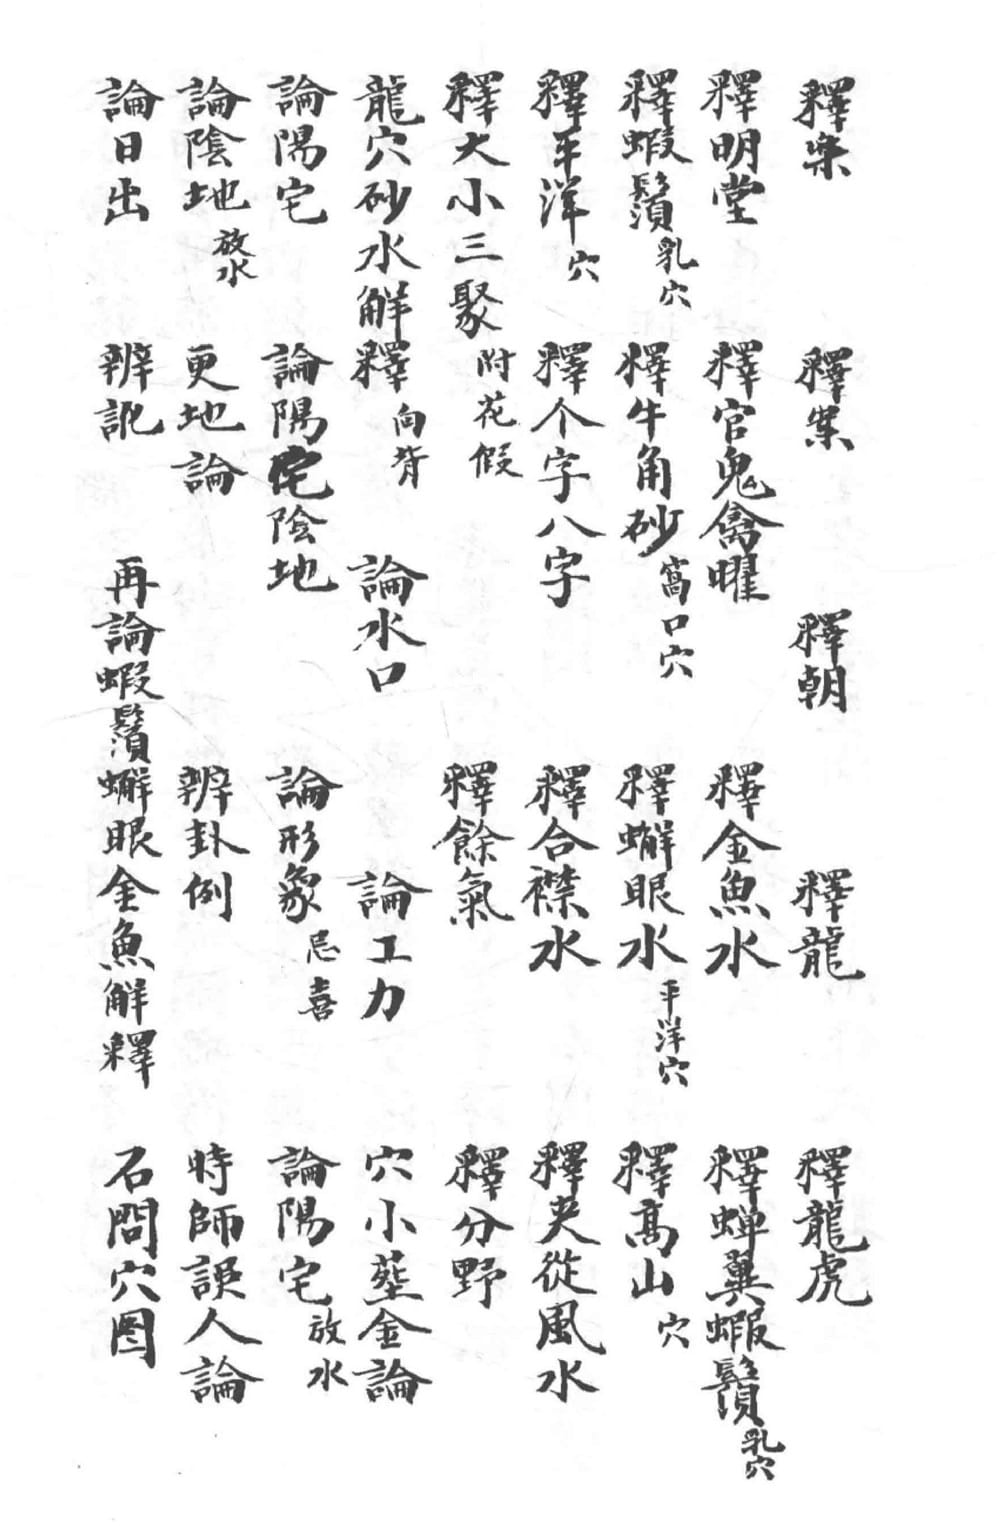 釋樂 釋案 釋朝 釋龍 釋龍虎
釋明堂 釋官鬼禽曜 釋金魚水 釋蟬翼蝦鬚乳穴
釋蝦鬚乳穴 釋牛角砂窩口穴 釋蠏眼水平洋穴 釋高山穴
釋平洋穴 釋个字八字 釋合襟水 釋夾從風水
釋大小三聚附花假 釋餘氣 釋分野
龍穴砂水解釋向背 論水口 論工力 穴小塟金論
論陽宅 論陽宅陰地 論形象忌喜 論陽宅放水
論陰地放水 更地論 辨卦例 時師誤人論
論日出 辨訛 再論蝦鬚蠏眼金魚解釋 石問穴圖